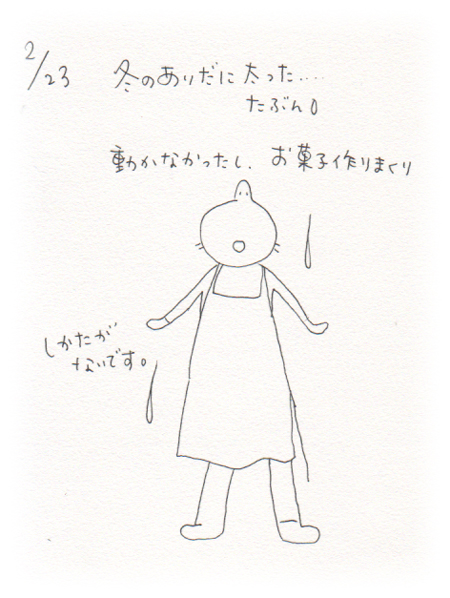 2/23
冬のあいだに太った....
たぶん。
動かなかったし、お菓子作りまくり
しかたが
ないです。